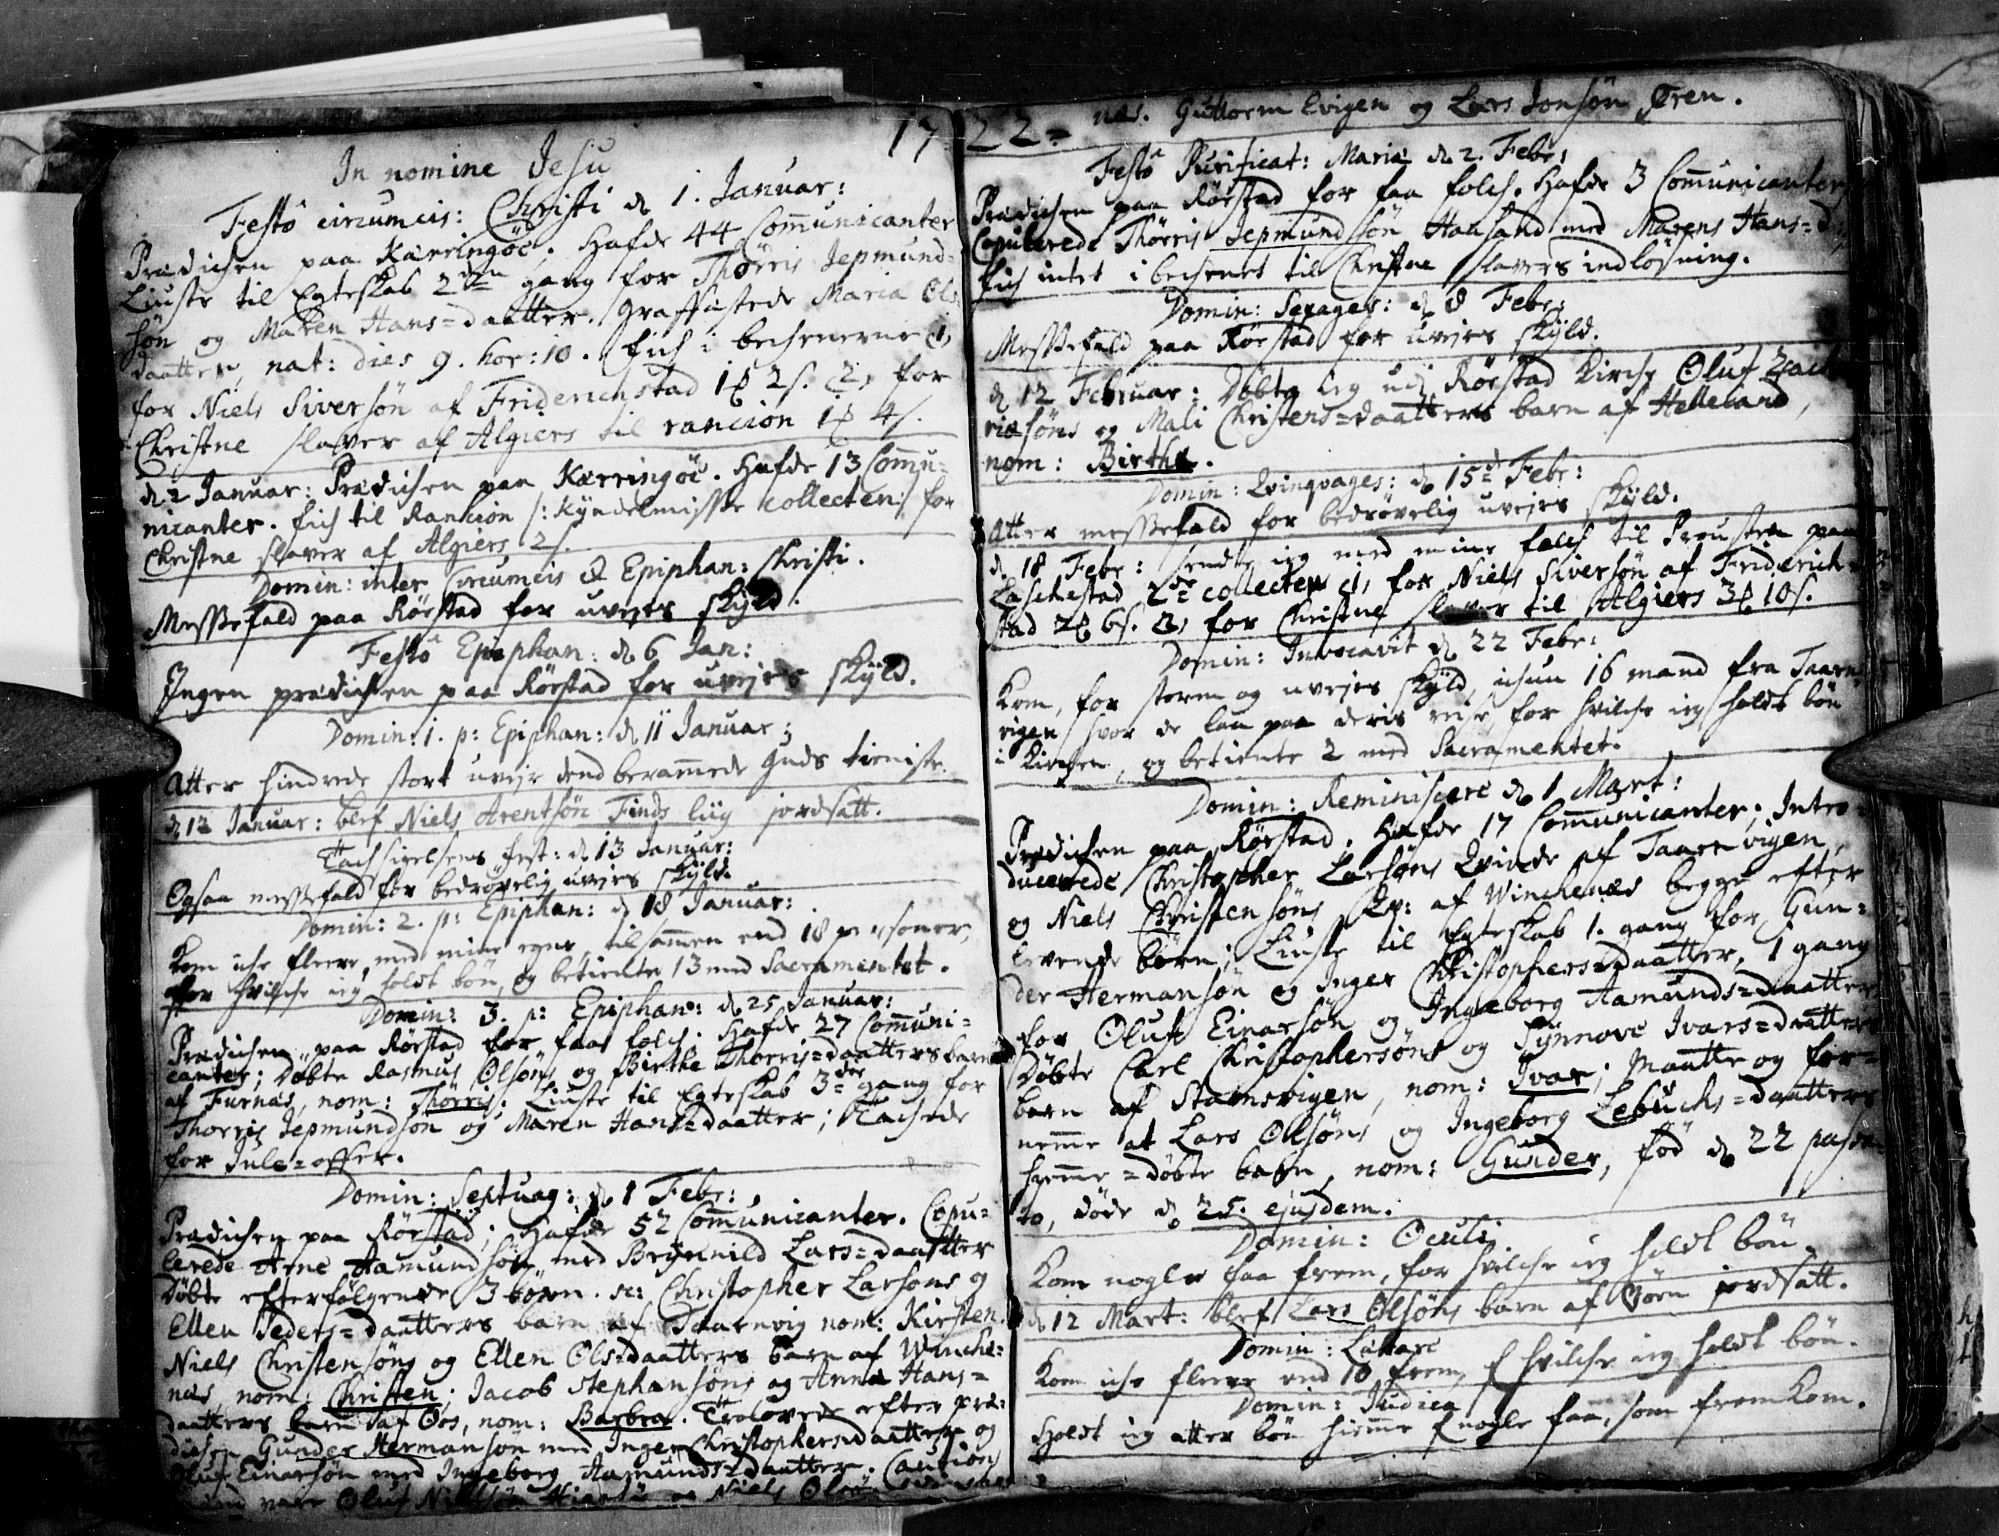 In nomine Jesu 17
Festô circumcis: Christi d. 1. Januar:
Prædichen paa Kærringöe. Hafde 44 Communicanter
Liuste til Egteskab 2den gang for Thörris Jepmund-
sön og Maren Hans=daatter. Graffæstede Maria Ols
daatter, nat: dies 9. hor: 10. Fich i bechenerne
for Niels Siversön af Friderichstad 2 s. for
Christne slaver af Algiers til rancion 4 s.
d. 2 Januar: Prædichen paa Kærringöe. Hafde 13 Commu-
nicanter. Fich til Rancion /: Kyndelmisse collecten :/ for
Christne slaver af Algiers 2 s.
Domin: inter Circumcis & Epiphan: Christi.
Messefald paa Rörstad for uvejrs skyld.
Festô Epiphan: d. 6 Jan:
Ingen prædichen paa Rörstad for uvejrs skyld.
Domin: 1. p: Epiphan: d. 11 Januar:
Atter hindrede stort uvejr dend berammede Guds tieniste.
d. 12 Januar: blef Niels Arentsön Finds liig jordsatt.
Tachsigelsens fest: d. 13 Januar:
Ogsaa messefald for bedrövelig uvejrs skyld.
Domin: 2. p: Epiphan: d. 18 Januar:
Kom iche fleere, med mine egne, tilsammen end 18 personer,
for hvilche ieg holdt bön, og betiente 13 med Sacramentet.
Domin: 3. p: Epiphan: d. 25 Januar:
Prædichen paa Rörstad for faa folch. Hafde 27 Communi-
canter; Döbte Rasmus Olsöns og Birthe Thorris=daatters barn
af Furnæs, nom: Thörris. Liuste til Egteskab 3de gang for
Thorris Jepmundsön og Maren Hans=daatter; Tachede
for Jule=offer.
Domin: Septuag: d. 1 Febr:
Prædichen paa Rörstad; Hafde 52 Communicanter. Copu-
lerede Arne Aamundsön med Brynnild Lars=daatter
Döbte efterfölgende 3 börn. sc: Christopher Larsöns og
Ellen Peders=daatters barn af Taarnvig nom: Kirsten.
Niels Christensöns og Ellen Ols=daatters barn af Winche-
næs nom: Christen; Jacob Stephansöns og Anna Hans=
daatters barn af Oos, nom: Barbra. Trolovede efter præ-
dichen Gunder Hermansön med Inger Christophers=daatter og
Oluf Einarsön med Ingeborg Aamunds=daatter. Caution
vare Oluf Nielsön og Niels
22= næs. Guttorm Evigen og Lars Jonsön Ören.
Festô Purificat: Mariæ d. 2. Febr:
Prædichen paa Rörstad for faa folch. Hafde 3 Communicanter,
Copulerede Thörris Jepmundsön med Marens Hans=d:,
fich intet i bechenet til Christne slavers indlösning.
Domin: Sexages: d. 8 Febr:
Messefald paa Rörstad for uvejrs skyld.
d. 12 Februar: Döbte ieg udj Rörstad Kirche Oluf
riæsöns og Mali Christens=daatters barn af Helleland,
nom: Birthe.
Domin: Qvinqvages: d. 15de Febr:
Atter messefald for bedrövelig uvejrs skyld.
d. 18 Febr: sendte ieg med mine folch til Prousten paa
Laschestad 2de collecter, for Niels Siversön af Friderich-
stad 6 s. for Christne slaver til Algiers 10 s.
Domin: Invocavit d. 22 Febr:
Kom, for storm og uvejrs skyld, ichun 16 mand fra Taarn-
vigen, hvor de laa paa deris reise, for hvilche ieg holdt bön
i Kirchen, og betiente 2 med Sacramentet.
Domin: Reminiscere d. 1 Mart:
Prædichen paa Rörstad. Hafde 17 Communicanter; Intro-
ducerede Christopher Larsöns Qvinde af Taarnvigen,
og Niels Christensöns Qv: af Winchenæs begge efter
levende börn; Liuste til Egteskab 1. gang for Gun-
der Hermansön og Inger Christophers=daatter, 1 gang
for Oluf Einarsön og Ingeborg Aamunds=daatter
Döbte Carl Christophersöns og Synnove Ivars=daatters
barn af Stamsvigen, nom: Ivar; Maatte og for-
nemme at Lars Olsöns og Ingeborg Lebuchs=daatters
hjemme=döbte barn, nom: Gunder, föd d. 22 passa-
to, döde d. 25. ejusdem.
Domin: Oculi
Kom nogle faa frem, for hvilche ieg holdt bön.
d. 12 Mart: blef Lars Olsöns barn af Ören jordsatt.
Domin: Lætare
Kom iche fleere end 10 frem, f hvilche ieg holdt bön.
Domin: Judica
Holdt ieg atter bön hiemme f nogle faa, som fremkom.